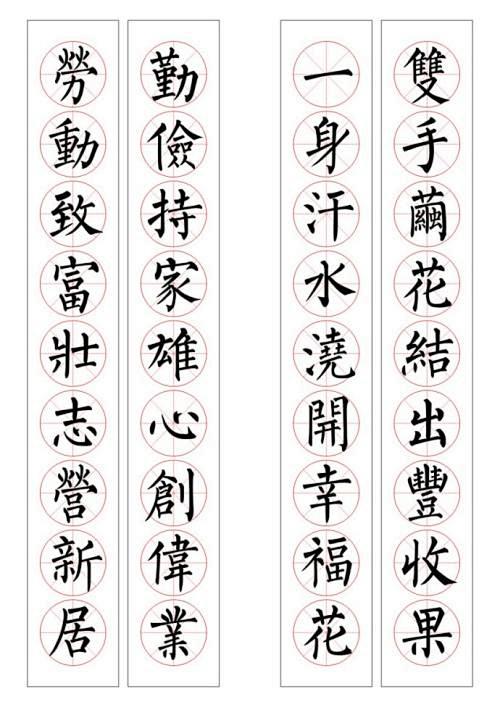 雙手繭花結出豐收果
一身汗水澆開幸福花
勤儉持家雄心創偉業
勞動致富壯志營新居